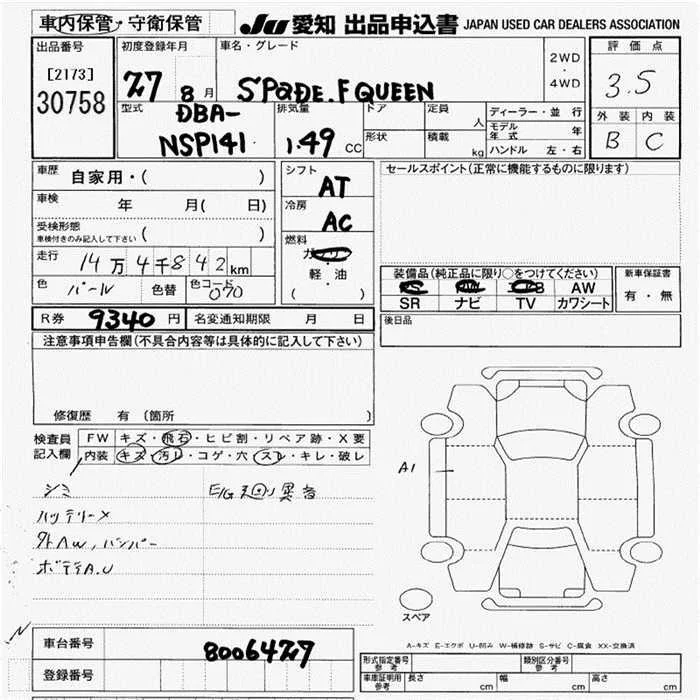 車内保管・守衛保管
JU愛知 出品申込書 JAPAN USED CAR DEALERS ASSOCIATION
出品番号
[2173]
30758
初度登録年月
27 8月
車名・グレード
SPADE.F QUEEN
2WD
・
4WD
評価点
3.5
外装 内装
B C
型式
DBA-
NSP141
排気量
1.49 CC
ドア
形状
定員 人
積載 kg
ディーラー・並行
モデル年式 年
ハンドル 左・右
車歴 自家用・( )
車検 年 月( 日)
受検形態
車検付きのみ記入して下さい ( )
走行 14万4千842km
色 パール 色替 色コード 070
シフト
AT
冷房
AC
燃料
軽・油
( )
セールスポイント(正常に機能するものに限ります)
装備品(純正品に限り○をつけてください)
AW
SR ナビ TV カワシート
新車保証書
有・無
R券 9340円 名変通知期限 月 日
後日品
注意事項申告欄(不具合内容等は具体的に記入して下さい)
修復歴 有 (箇所 )
検査員
記入欄
FW キズ・飛石・ヒビ割・リペア跡・X要
内装 キズ・汚レ・コゲ・穴・スレ・キレ・破レ
シミ
E/G廻り異音
バッテリー×
外AW,バンパー
ボデーA.U
A1
スペア
A-キズ E-エクボ U-凹み W-補修跡 S-サビ C-腐食 XX-交換済
車台番号 8006427
登録番号
形式指定番号
参考
類別区分番号
参考
車庫証明用
参考
長さ cm 幅 cm 高さ cm